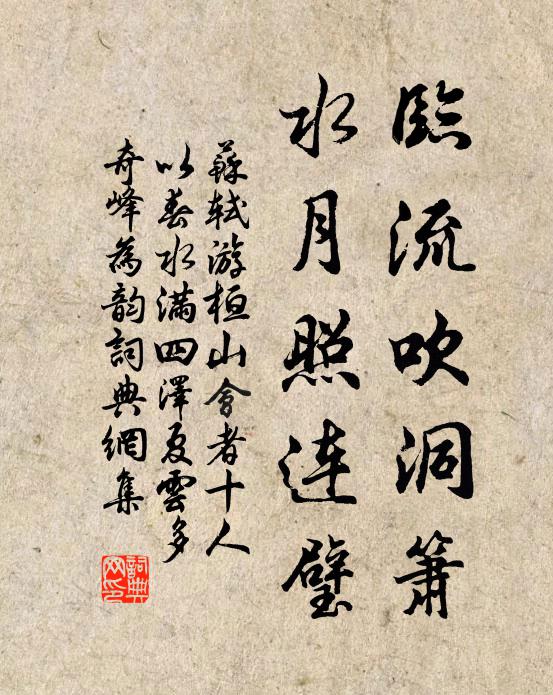 臨流吹洞簫
水月照連璧
蘇軾游桓山會者十人
以春水滿四澤夏雲多
奇峰為韵詞典網集
詞典
网印